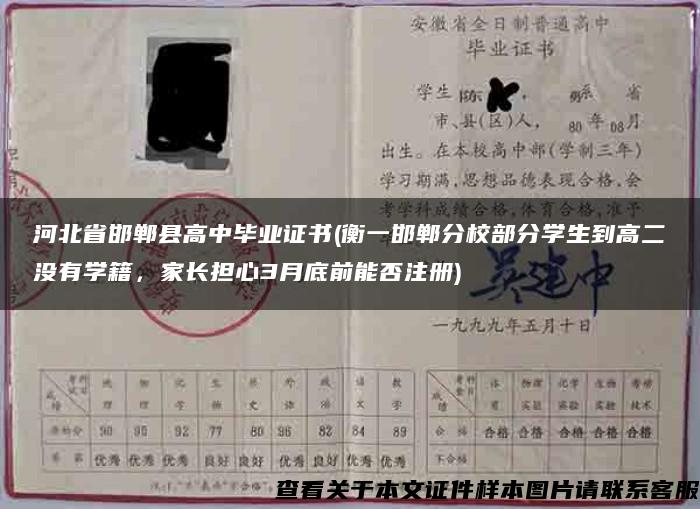 安徽省全日制普通高中
毕业证书
学生 陈 , 男系 省
市、县(区)人, 80 年 08 月
出生。在本校高中部(学制三年)
学习期满,思想品德表现合格,会
考学科成绩合格,体育合格,准予
河北省邯郸县高中毕业证书(衡一邯郸分校部分学生到高二
没有学籍，家长担心3月底前能否注册)
吴建中
一九九九年五月十日
成绩 考试科目 地理 物理 化学 生物 历史 外语 政治 语文 数学
90 95 92 77 80 96 82 84 89
等第 优秀 优秀 优秀 良好 良好 优秀 优秀 优秀 优秀
成绩 考查科目 体育 物理实验 化学实验 生物实验 劳动技术
合格 合格 合格 合格 合格 合格
不合格
查看关于本文证件样本图片请联系客服